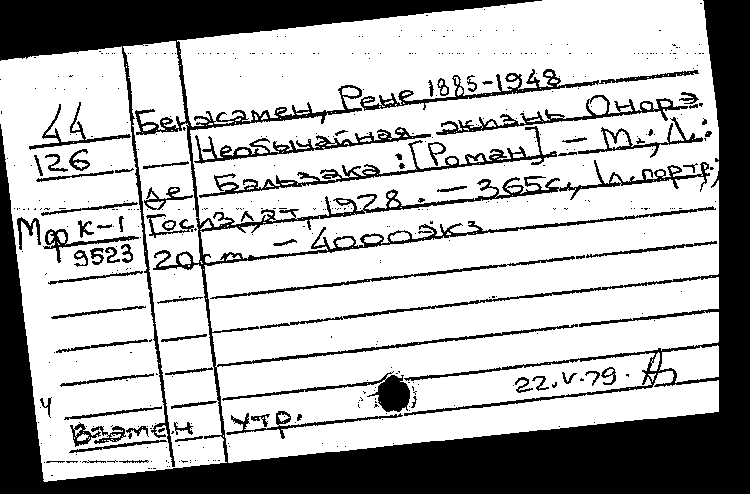 44
126
Мдф К-1
9523
Бенжамен, Рене, 1885-1948
Необычайная жизнь Онорэ
де Бальзака : [Роман]. — М.; Л.:
Госиздат, 1928. — 365с., 1 л. портр.;
20 см. — 4000экз
22.V.79.
4
Взамен утр.